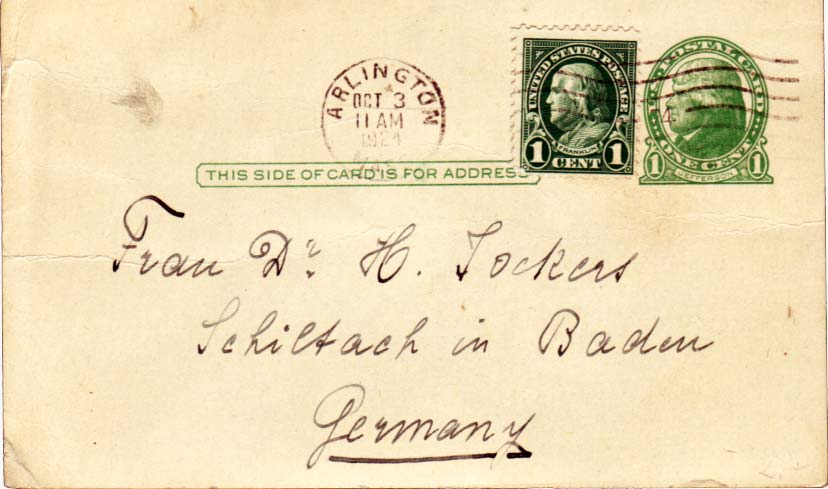 ARLINGTON
OCT 3
11 AM
1924
MASS.
UNITED STATES POSTAGE
FRANKLIN
1 CENT 1
U.S. POSTAL CARD
1 ONE CENT 1
JEFFERSON
THIS SIDE OF CARD IS FOR ADDRESS
Frau Dr. H. Jockers
Schiltach in Baden
Germany